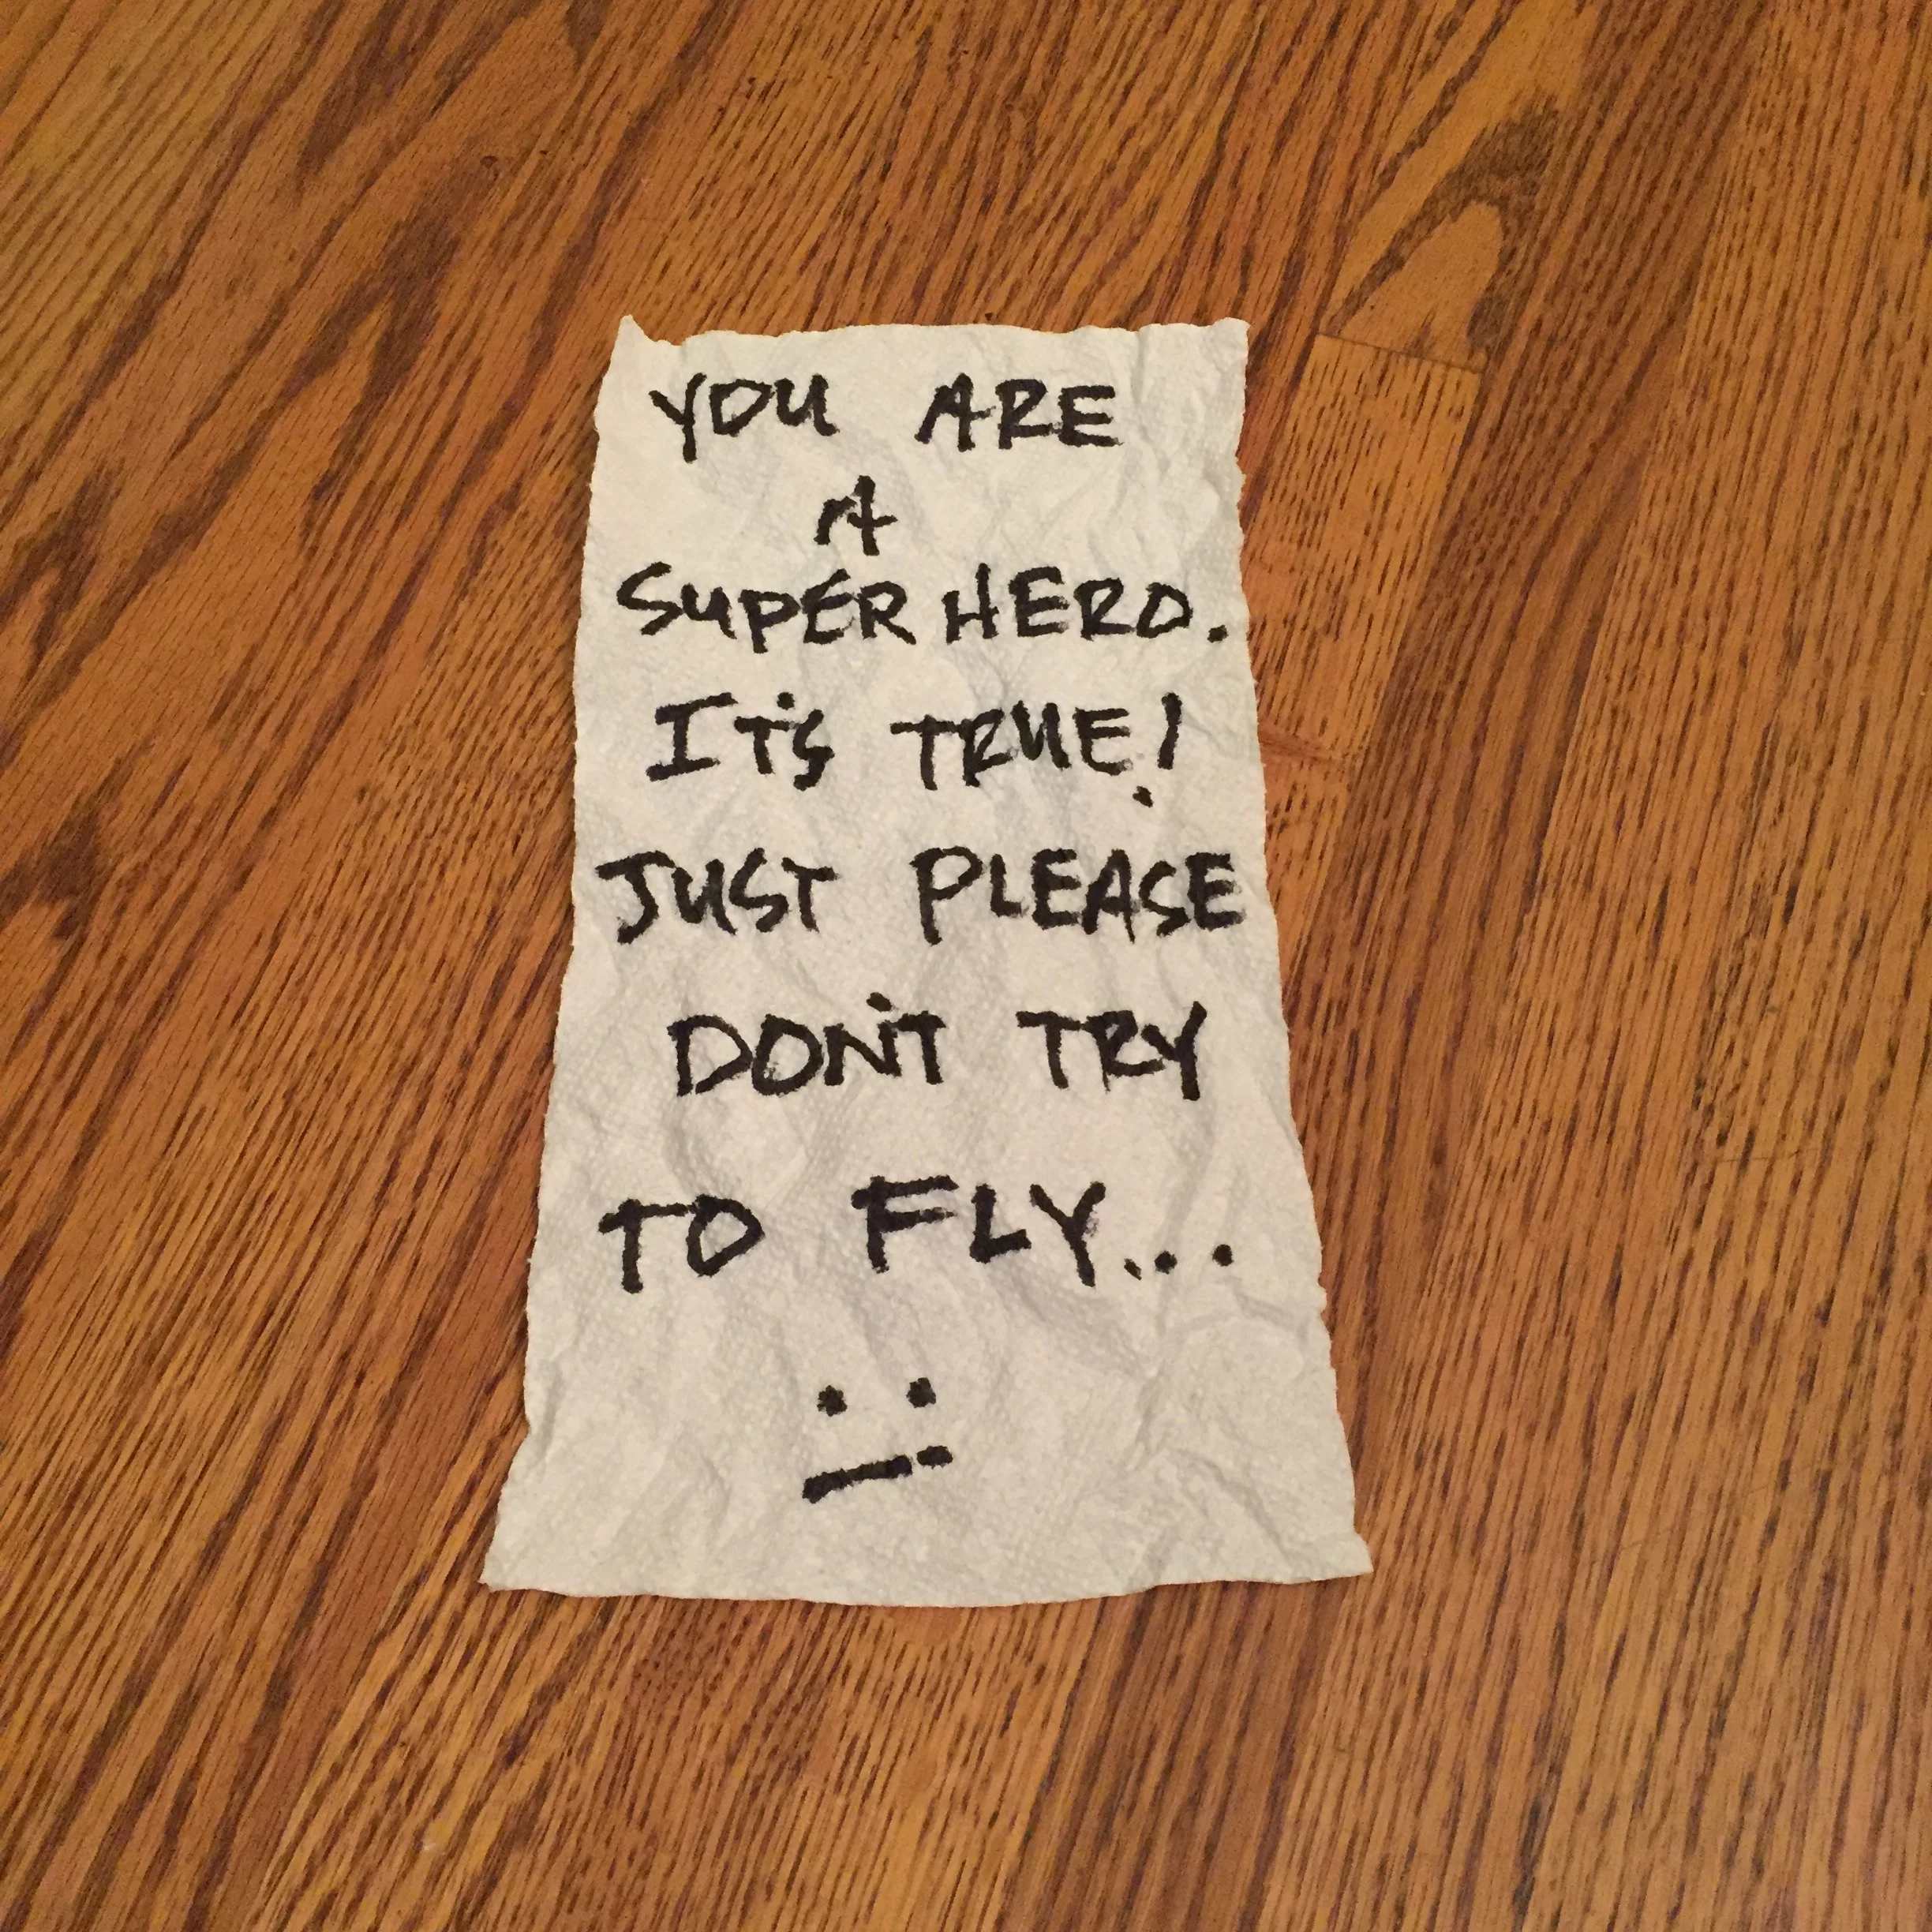 YOU ARE
A
SUPER HERO.
IT'S TRUE!
JUST PLEASE
DON'T TRY
TO FLY...